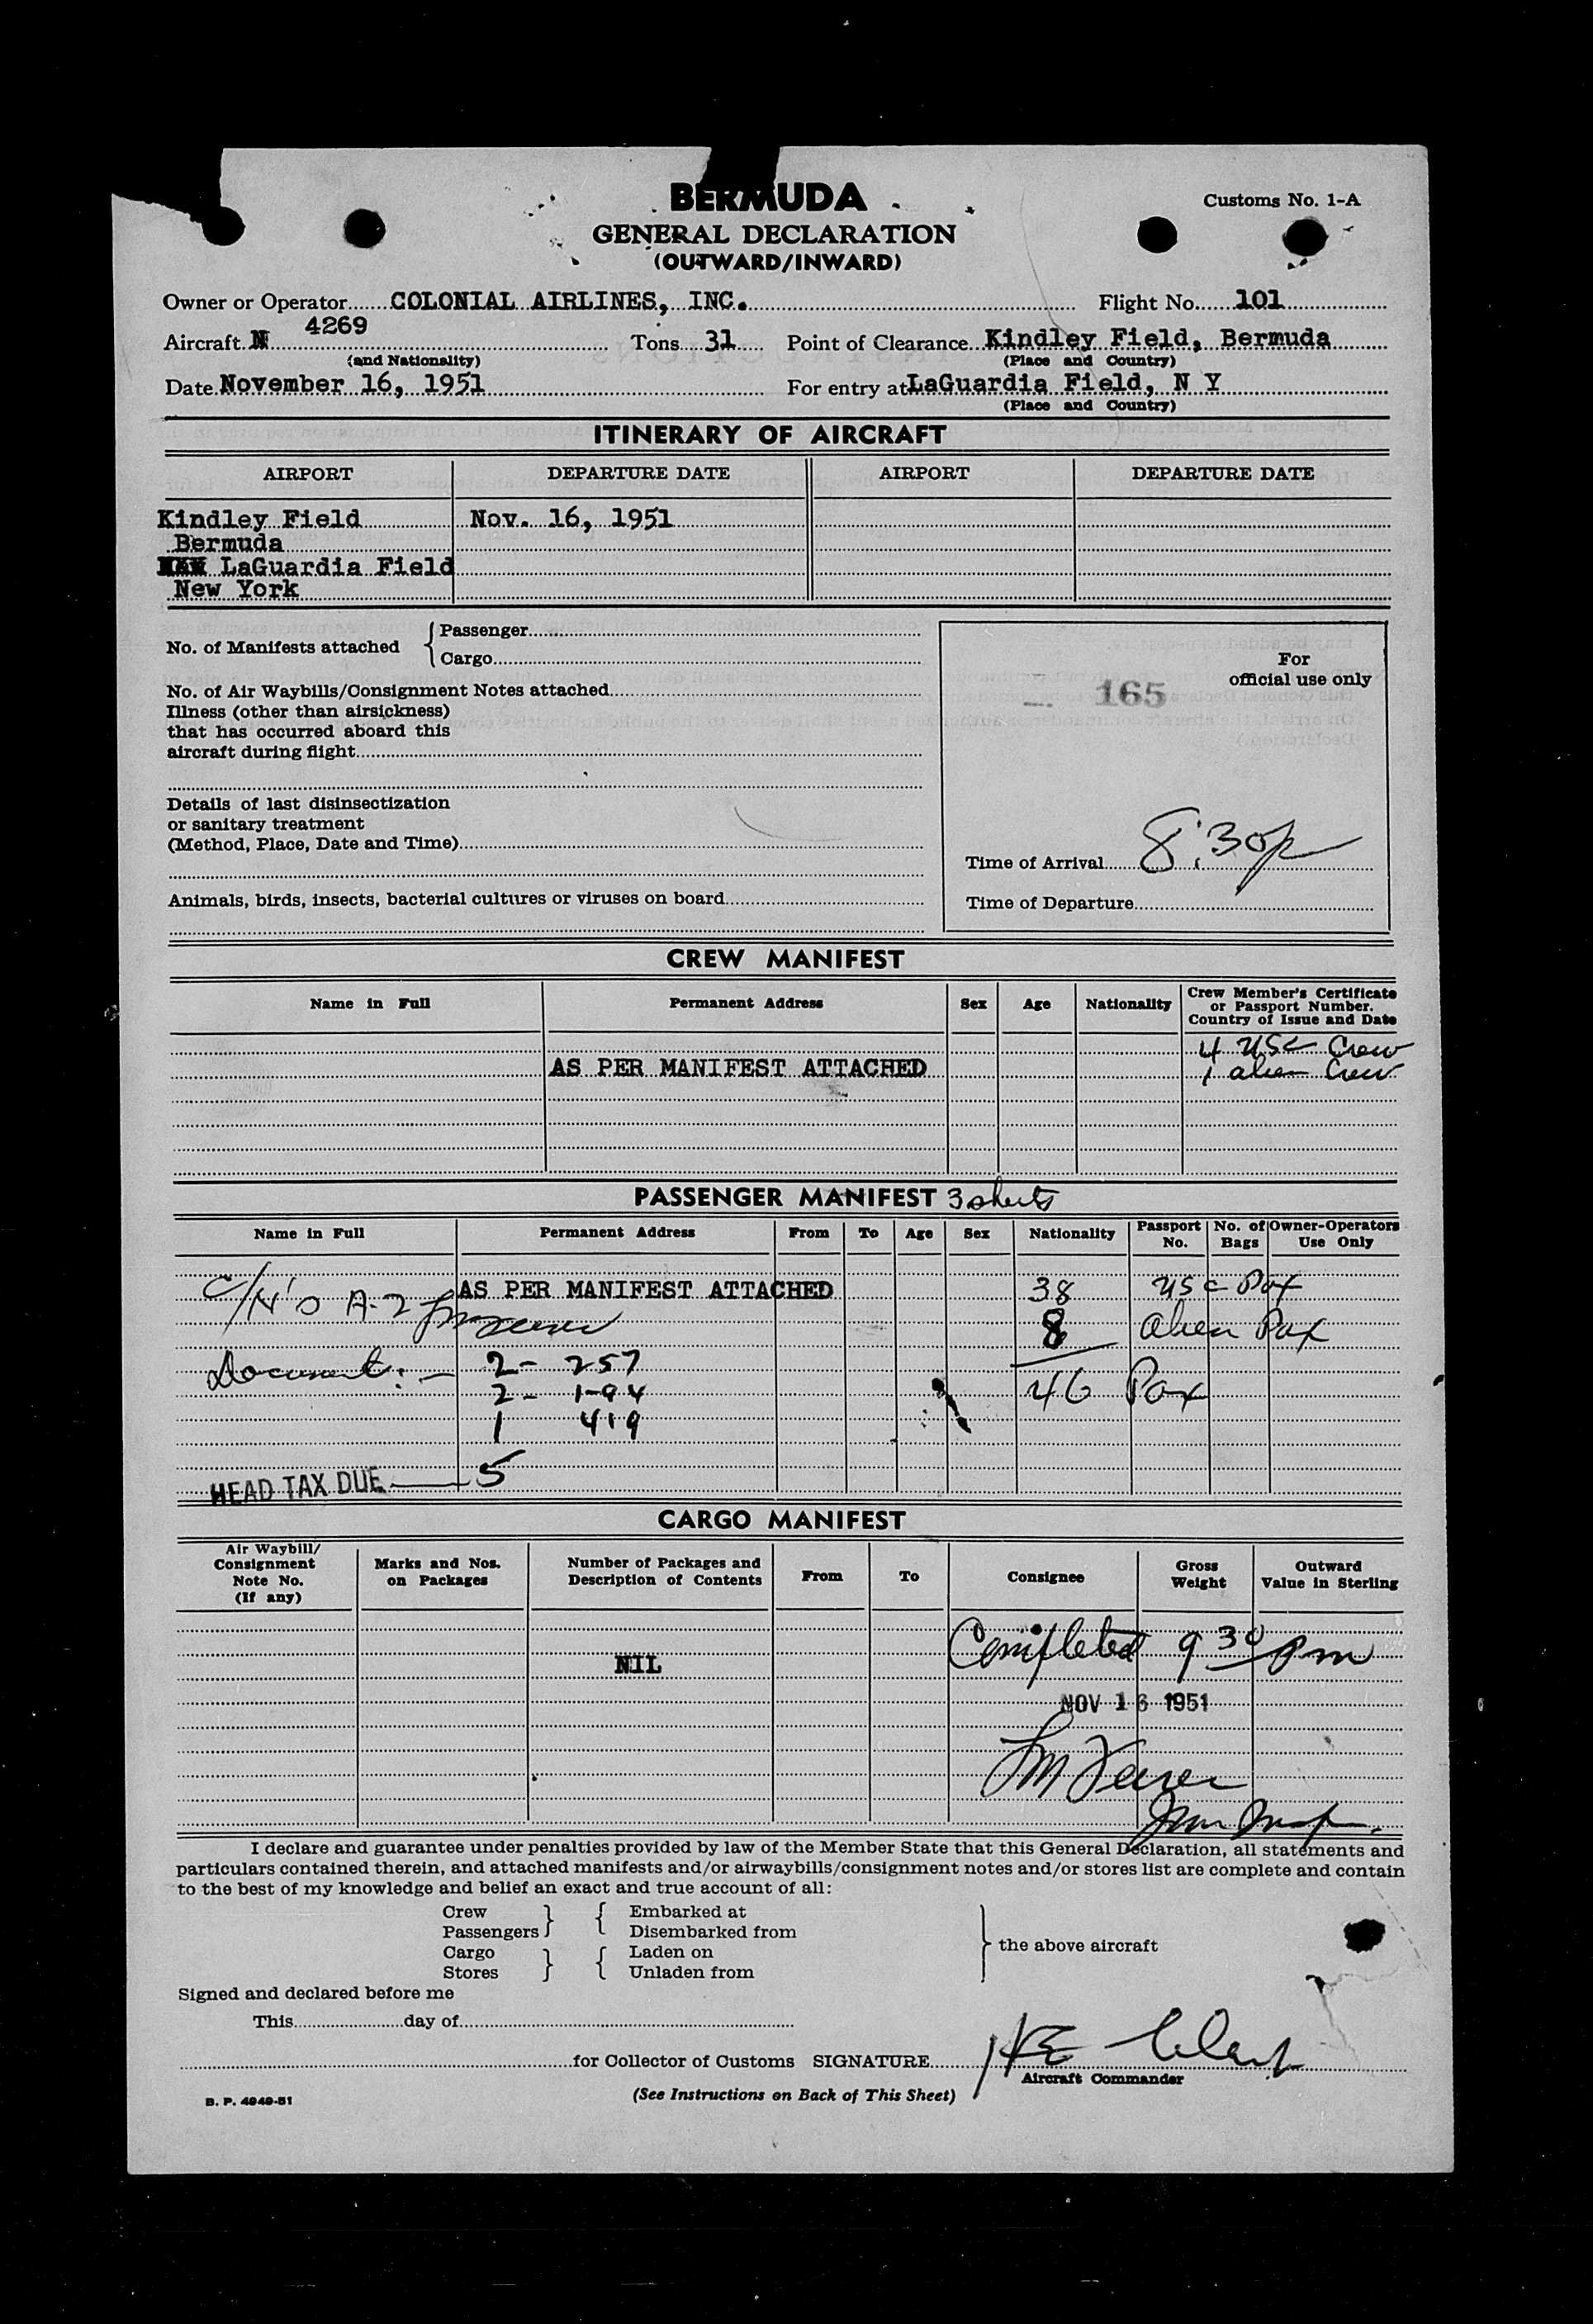 BERMUDA
Customs No. 1-A
GENERAL DECLARATION
(OUTWARD/INWARD)
Owner or Operator COLONIAL AIRLINES, INC. Flight No. 101
Aircraft N 4269 Tons 31 Point of Clearance Kindley Field, Bermuda
(and Nationality) (Place and Country)
Date November 16, 1951 For entry at LaGuardia Field, N Y
(Place and Country)
ITINERARY OF AIRCRAFT
AIRPORT DEPARTURE DATE AIRPORT DEPARTURE DATE
Kindley Field Nov. 16, 1951
Bermuda
LaGuardia Field
New York
No. of Manifests attached { Passenger
Cargo
No. of Air Waybills/Consignment Notes attached
Illness (other than airsickness)
that has occurred aboard this
aircraft during flight
Details of last disinsectization
or sanitary treatment
(Method, Place, Date and Time)
Animals, birds, insects, bacterial cultures or viruses on board
For
official use only
165
Time of Arrival 8:30p
Time of Departure
CREW MANIFEST
Name in Full Permanent Address Sex Age Nationality Crew Member's Certificate
or Passport Number.
Country of Issue and Date
4 USC Crew
AS PER MANIFEST ATTACHED 1 alien Crew
PASSENGER MANIFEST 3 sheets
Name in Full Permanent Address From To Age Sex Nationality Passport No. No. of Bags Owner-Operators Use Only
AS PER MANIFEST ATTACHED 38 USC Pax
C/N'O A-2
8 alien Pax
Document:- 2- 257
2- 1-94 46 Pax
1 419
HEAD TAX DUE 5
CARGO MANIFEST
Air Waybill/
Consignment
Note No.
(If any)
Marks and Nos.
on Packages
Number of Packages and
Description of Contents
From To Consignee
Gross
Weight
Outward
Value in Sterling
Completed 9 30 pm
NIL
NOV 16 1951
I declare and guarantee under penalties provided by law of the Member State that this General Declaration, all statements and
particulars contained therein, and attached manifests and/or airwaybills/consignment notes and/or stores list are complete and contain
to the best of my knowledge and belief an exact and true account of all:
Crew } { Embarked at
Passengers Disembarked from
Cargo } { Laden on } the above aircraft
Stores Unladen from
Signed and declared before me
This day of
for Collector of Customs SIGNATURE HE
Aircraft Commander
B. P. 4949-51
(See Instructions on Back of This Sheet)